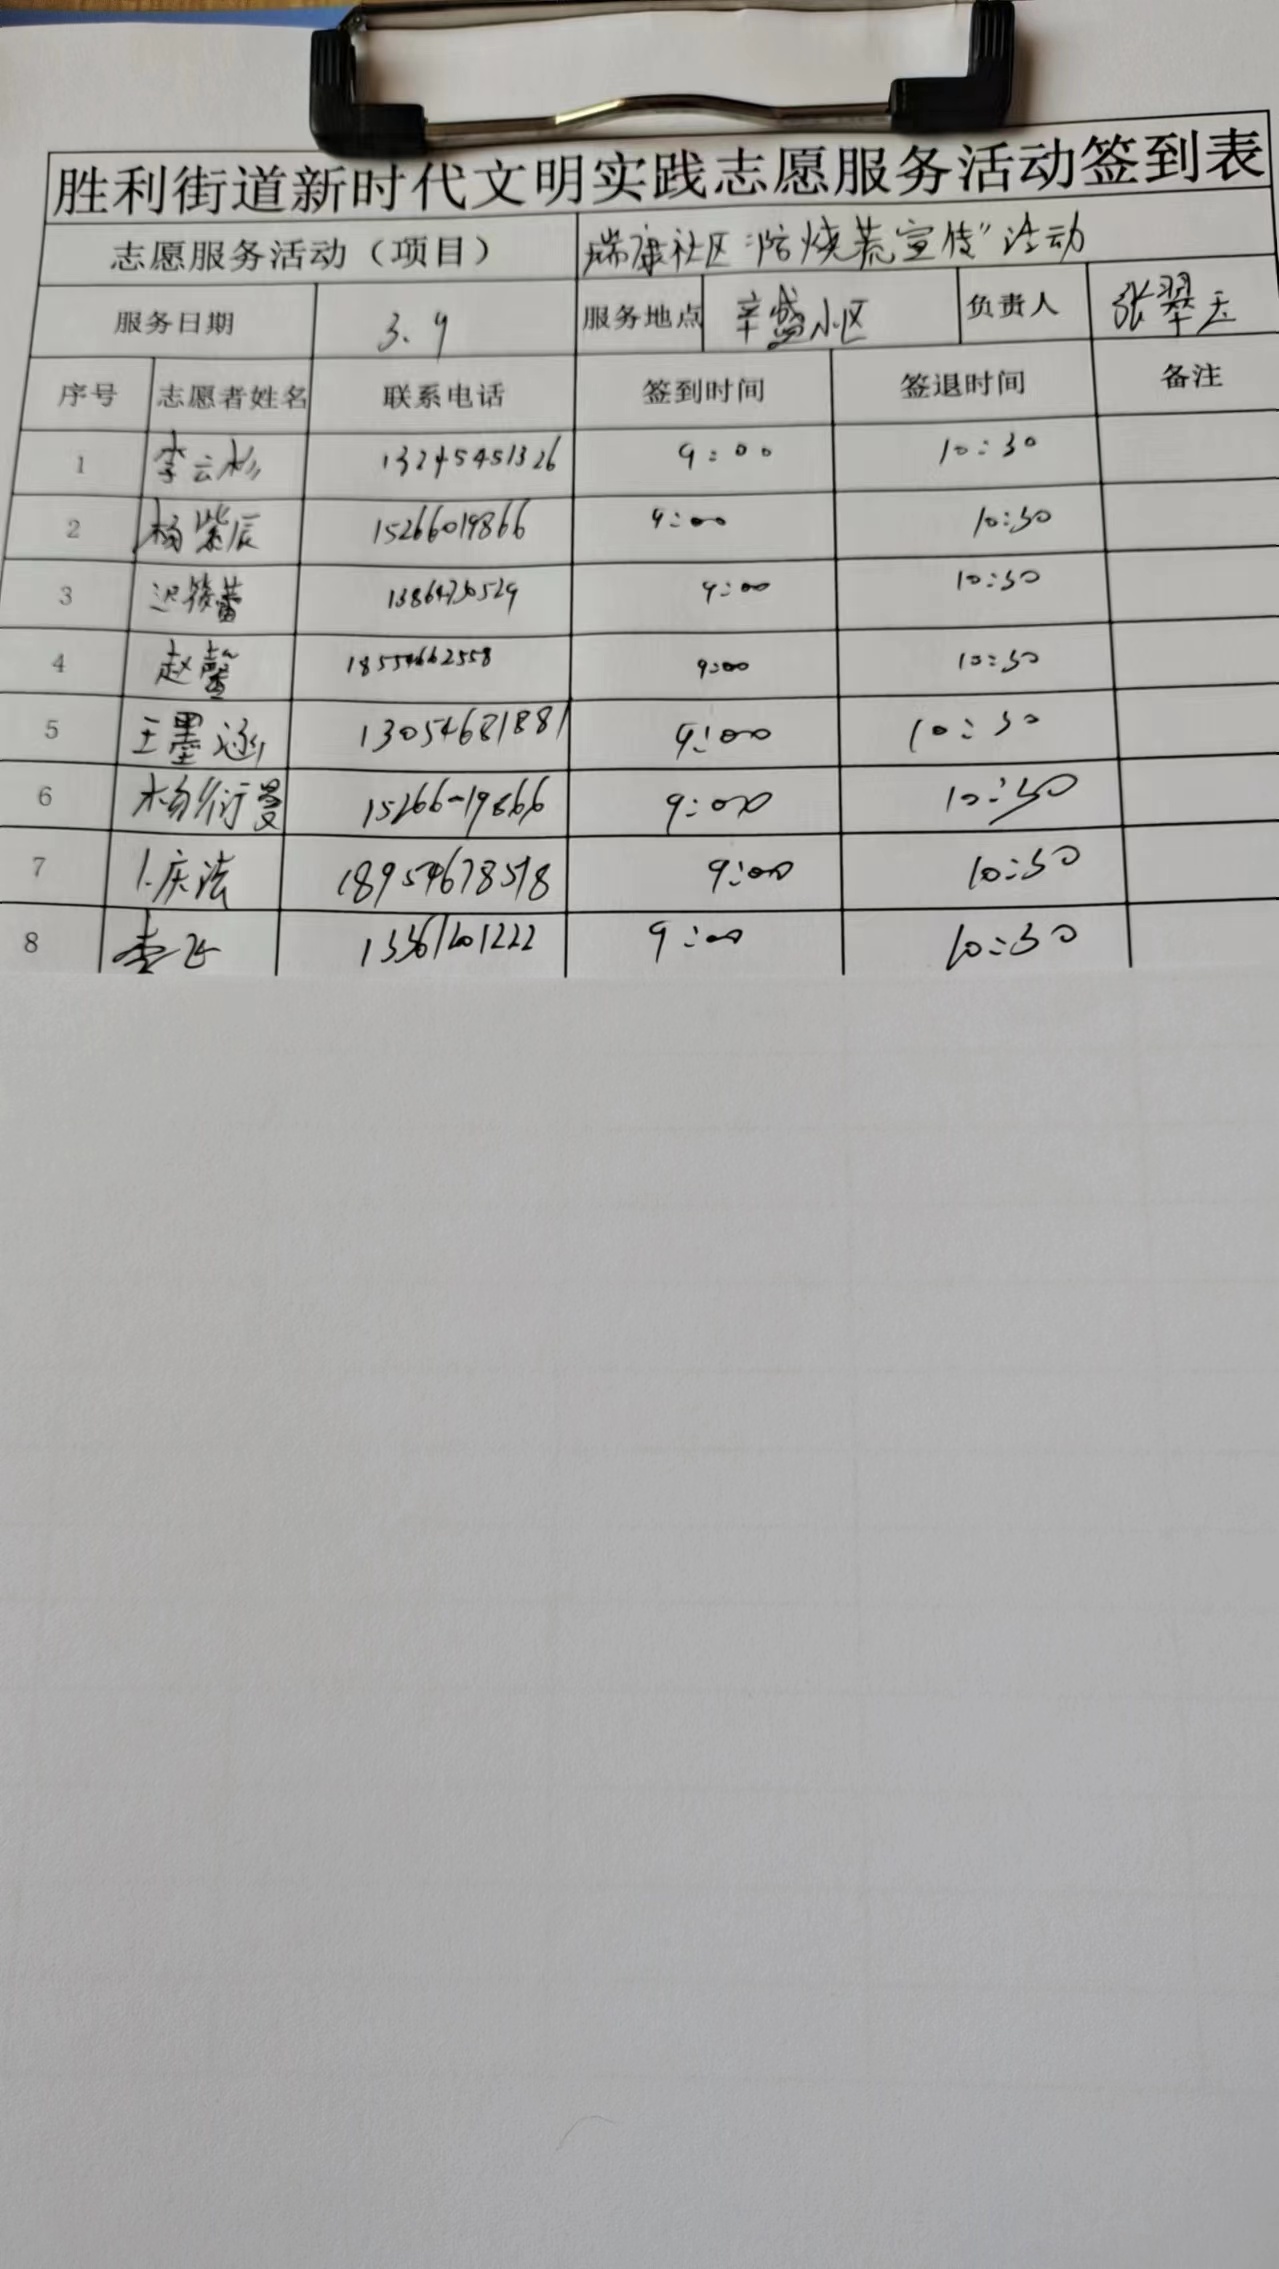 胜利街道新时代文明实践志愿服务活动签到表
志愿服务活动（项目） 瑞康社区“防烧荒宣传”活动
服务日期 3.9 服务地点 辛盛小区 负责人 张翠玉
序号 志愿者姓名 联系电话 签到时间 签退时间 备注
1 李云杉 13245451326 9:00 10:30
2 杨紫辰 15266019866 9:00 10:30
3 迟筱蕾 9:00 10:30
4 赵馨 18554662558 9:00 10:30
5 王墨涵 13054681881 9:00 10:30
6 杨衍曼 9:00 10:30
7 庆法 18954678518 9:00 10:30
8 李飞 13361201222 9:00 10:30